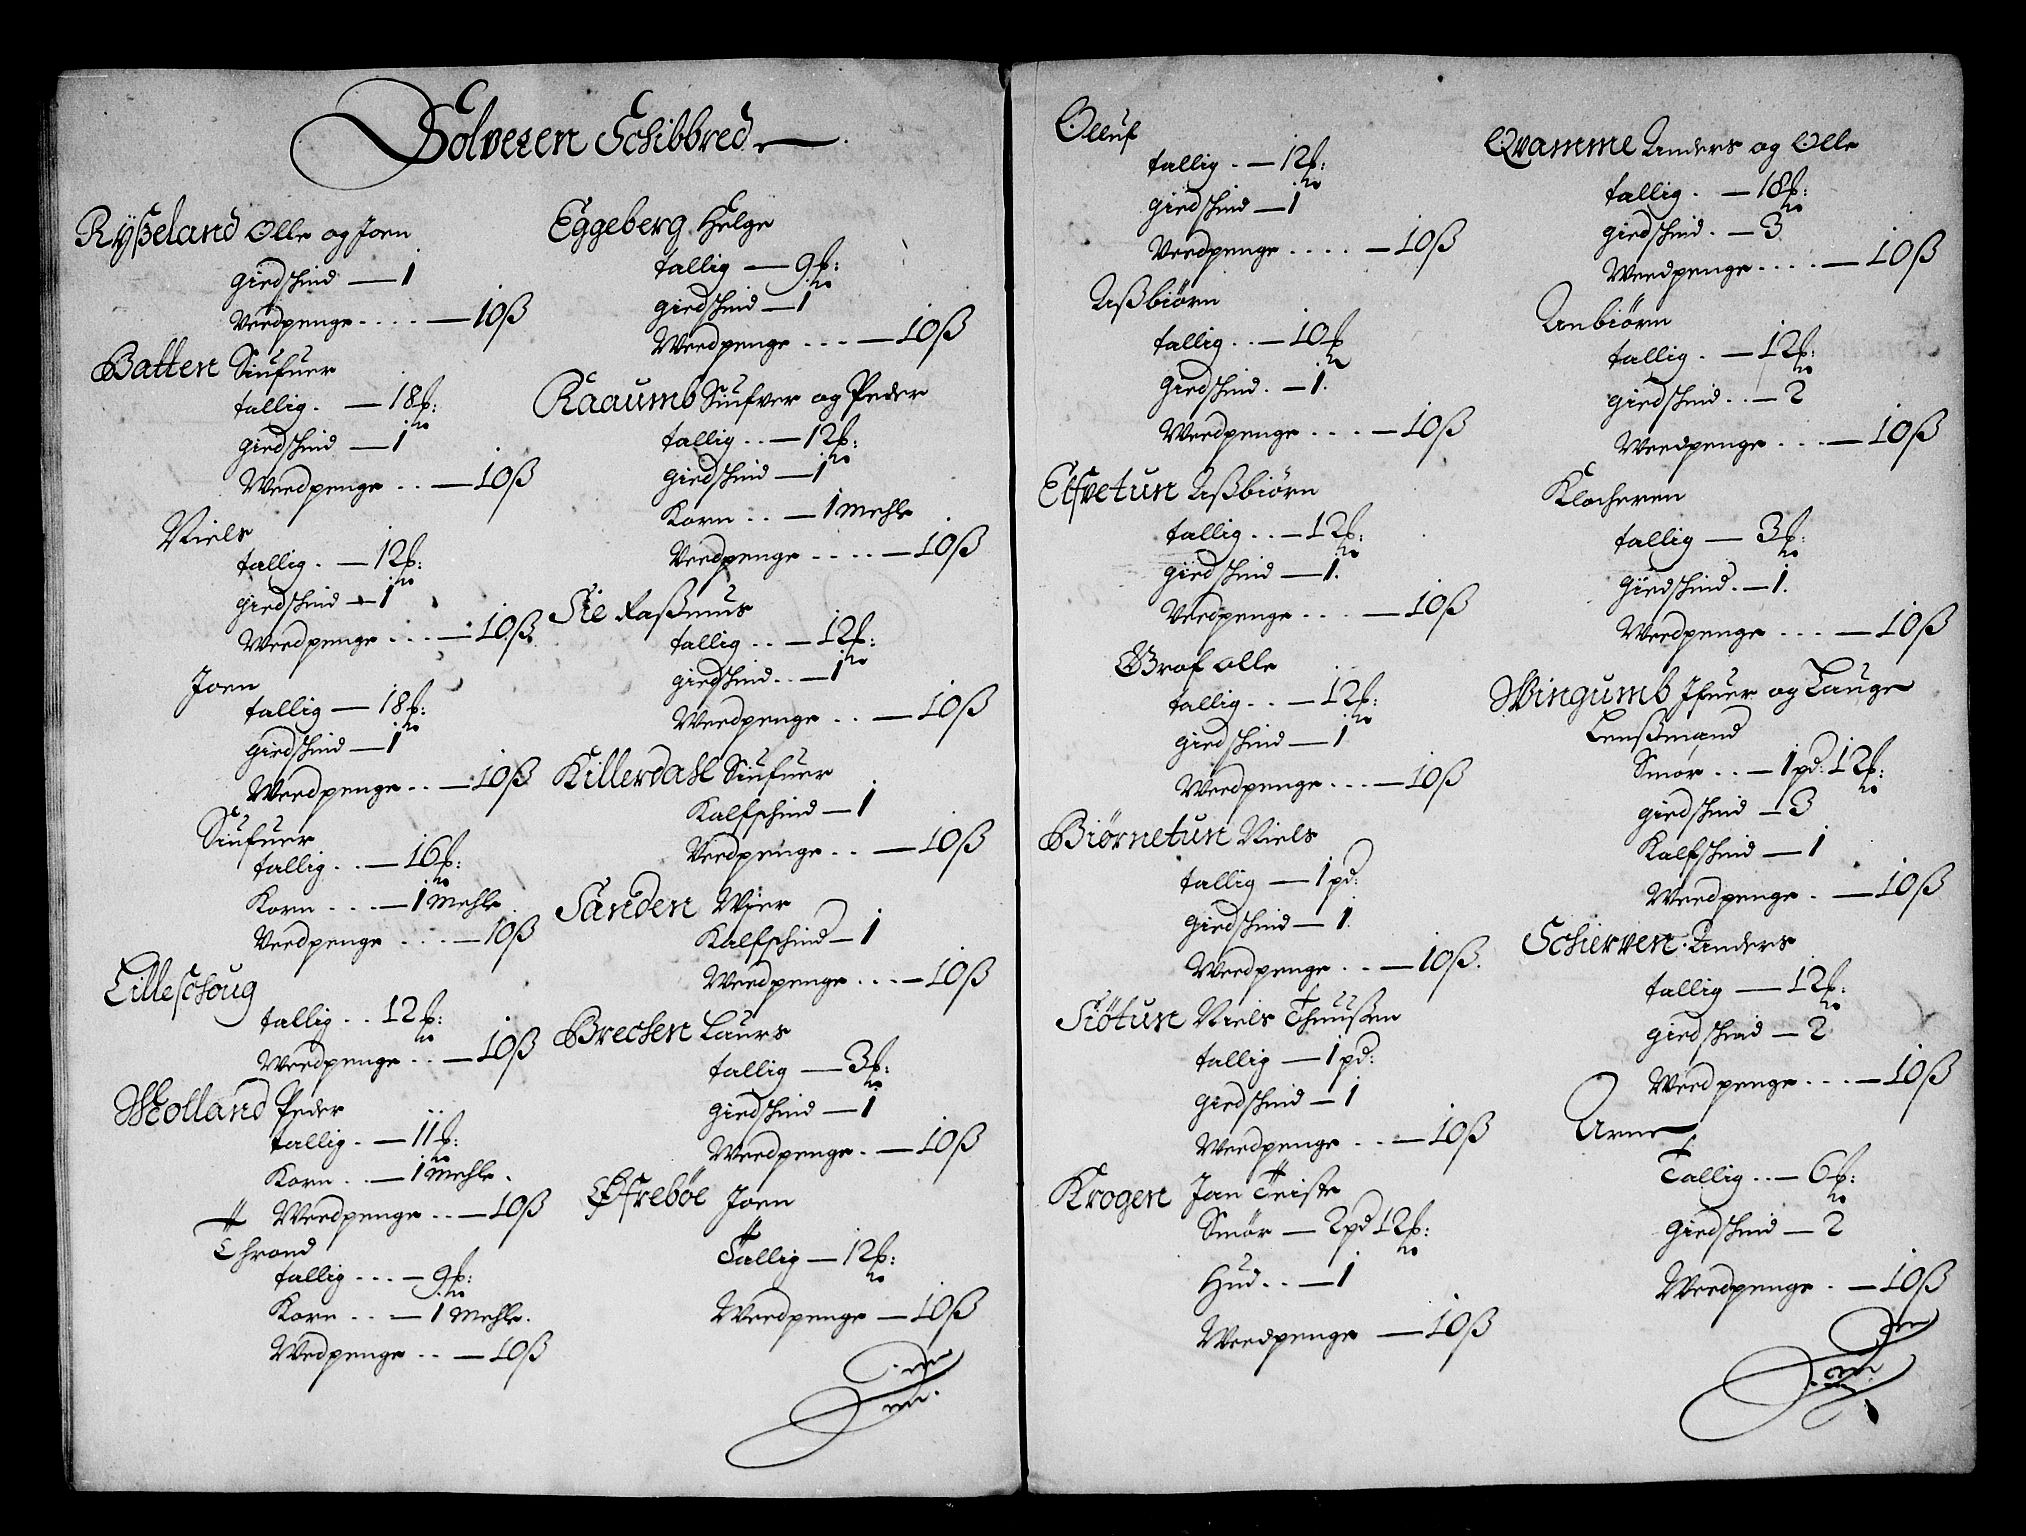 Solvesen Schibbred
Rÿßeland Olle og Joen
giedschind — 1
Veedpenge .... — 10 ß
Batten Siufuer
tallig . — 18 ℔:
giedschind — 1
Weedpenge .. — 10 ß
Niels
tallig . — 12 ℔:
giedschind — 1
Weedpenge ... — 10 ß
Joen
tallig — 18 ℔:
giedschind — 1
Weedpenge .. — 10 ß
Siufuer
tallig .. — 16 ℔:
Korn ... — 1 mehle
Veedpenge ... — 10 ß
Lilleschoug
tallig .. 12 ℔:
Weedpenge .. — 10 ß
Molland Peder
tallig . — 11 ℔:
Korn .. — 1 mehle.
Weedpenge .. — 10 ß
Thrond
tallig ... — 9 ℔:
Korn .. — 1 mehle.
Wedpenge .. — 10 ß
Eggeberg Helge
tallig — 9 ℔:
giedschind — 1
Weedpenge ... — 10 ß
Raaumb Siufver og Peder
tallig .. — 12 ℔:
giedschind — 1
Korn .. — 1 mehle
Veedpenge .... — 10 ß
Sie Raßmus
tallig .. — 12 ℔:
giedschind .. — 1
Weedpenge .. — 10 ß
Killerdahl Siufuer
Kalfschind — 1
Veedpenge .. — 10 ß
Sanden Wier
Kalfschind — 1
Weedpenge ... — 10 ß
Brechen Laurs
tallig — 3 ℔:
giedschind — 1
Weedpenge . — 10 ß
Øfrebøe Joen
Tallig — 12 ℔:
Weedpenge — 10 ß
Olluf
tallig . — 12 ℔:
giedschind — 1
Veedpenge .... — 10 ß
Aßbiørn
tallig .. — 10 ℔
giedschind . — 1.
Weedpenge ... — 10 ß
Elfvetun Aßbiørn
tallig .. — 12 ℔:
giedschind — 1.
Veedpenge ... — 10 ß
Graf Olle
tallig .. — 12 ℔:
giedschind — 1
Weedpenge ... — 10 ß
Biørnetun Niels
tallig — 1 pd:
giedschind — 1.
Weedpenge .. — 10 ß.
Siøtun Niels Thuußen
tallig — 1 pd:
giedschind — 1
Weedpenge .. — 10 ß
Krogen Jan Teiste
Smør — 2 pd 12 ℔:
Hud .. — 1
Weedpenge — 10 ß
Qvamme Anders og Olle
tallig . — 18 ℔:
giedschind . — 3
Weedpenge .... — 10 ß
Anbiørn
tallig . — 12 ℔:
giedschind .. — 2
Weedpenge ... — 10 ß
Klocheren
tallig — 3 ℔:
giedschind . — 1.
Weedpenge ... — 10 ß
Wingumb Ifuer og Lauge
Lenßmand
Smør .. — 1 pd: 12 ℔:
giedschind — 3
Kalfschind — 1
Weedpenge . — 10 ß
Schierven Anders
tallig — 12 ℔:
giedschind — 2
Weedpenge ... — 10 ß
Arne
Tallig .. — 6 ℔:
giedschind — 2
Weedpenge . — 10 ß